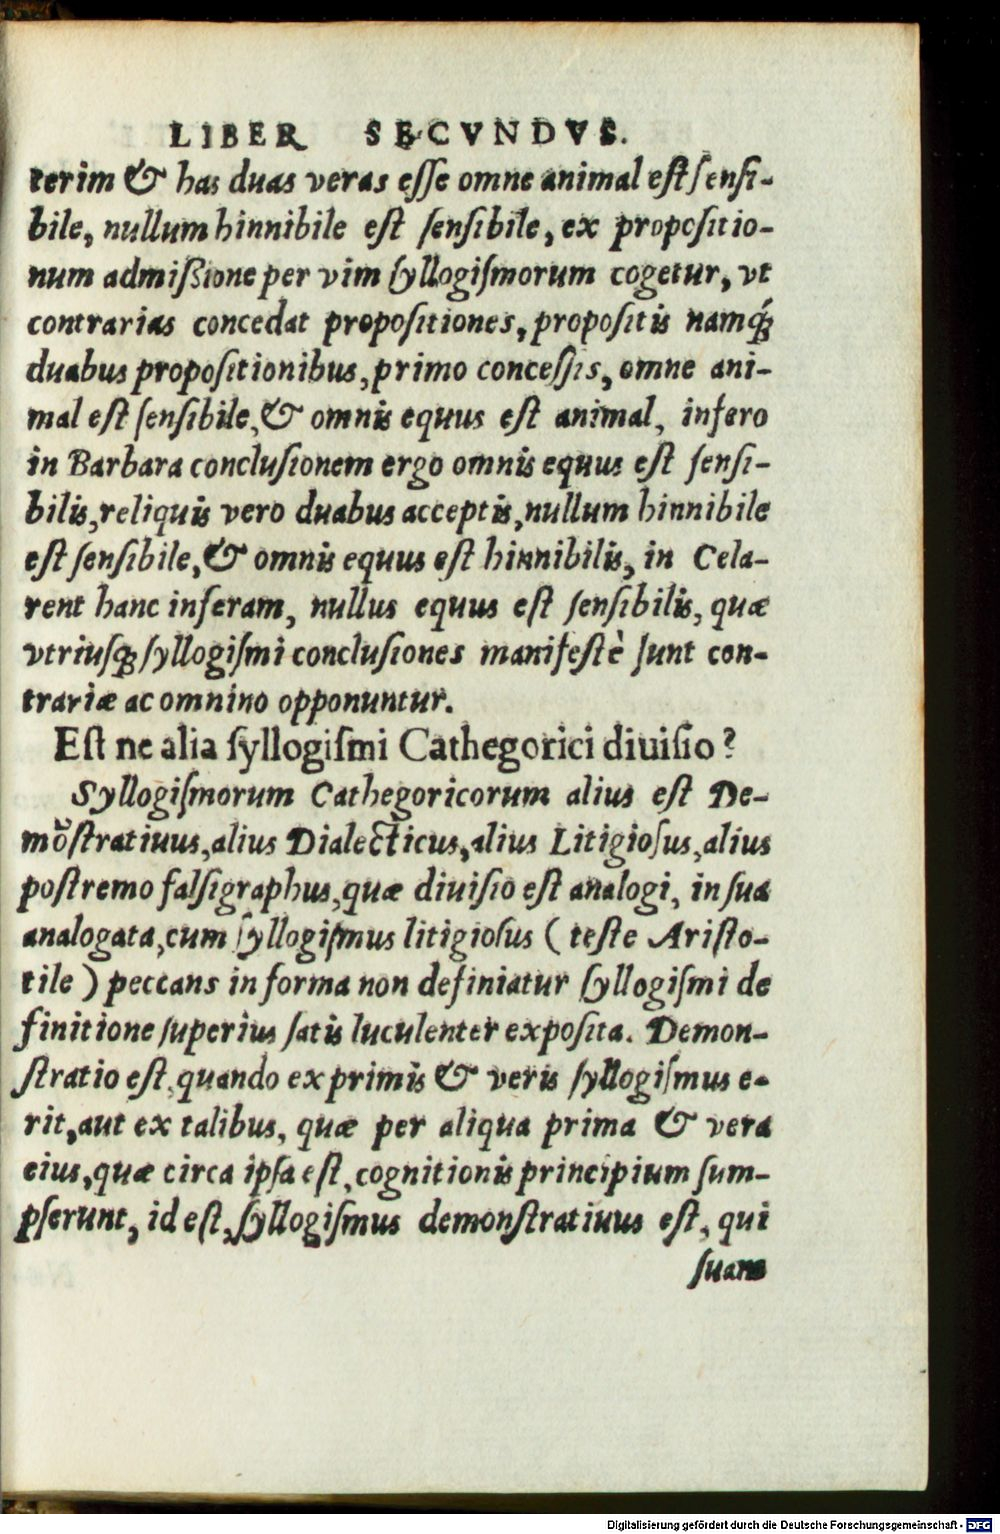 LIBER SECVNDVS.
terim & has duas veras eſſe omne animal eſt ſenſi-
bile, nullum hinnibile eſt ſenſibile, ex propoſitio-
num admiſsione per vim ſyllogiſmorum cogetur, vt
contrarias concedat propoſitiones, propoſitis namq́;
duabus propoſitionibus, primo conceſſis, omne ani-
mal eſt ſenſibile, & omnis equus eſt animal, infero
in Barbara concluſionem ergo omnis equus eſt ſenſi-
bilis, reliquis vero duabus acceptis, nullum hinnibile
eſt ſenſibile, & omnis equus eſt hinnibilis, in Cela-
rent hanc inferam, nullus equus eſt ſenſibilis, quæ
vtriuſq; ſyllogiſmi concluſiones manifeſtè ſunt con-
trariæ ac omnino opponuntur.
Eſt ne alia ſyllogiſmi Cathegorici diuiſio?
Syllogiſmorum Cathegoricorum alius eſt De-
mõſtratiuus, alius Dialecticus, alius Litigioſus, alius
poſtremo falſigraphus, quæ diuiſio eſt analogi, in ſua
analogata, cum ſyllogiſmus litigioſus (teſte Ariſto-
tile) peccans in forma non definiatur ſyllogiſmi de
finitione ſuperius ſatis luculenter expoſita. Demon-
ſtratio eſt, quando ex primis & veris ſyllogiſmus e-
rit, aut ex talibus, quæ per aliqua prima & vera
eius, quæ circa ipſa eſt, cognitionis principium ſum-
pſerunt, id eſt, ſyllogiſmus demonſtratiuus eſt, qui
ſuam
Digitalisierung gefördert durch die Deutsche Forschungsgemeinschaft - DFG